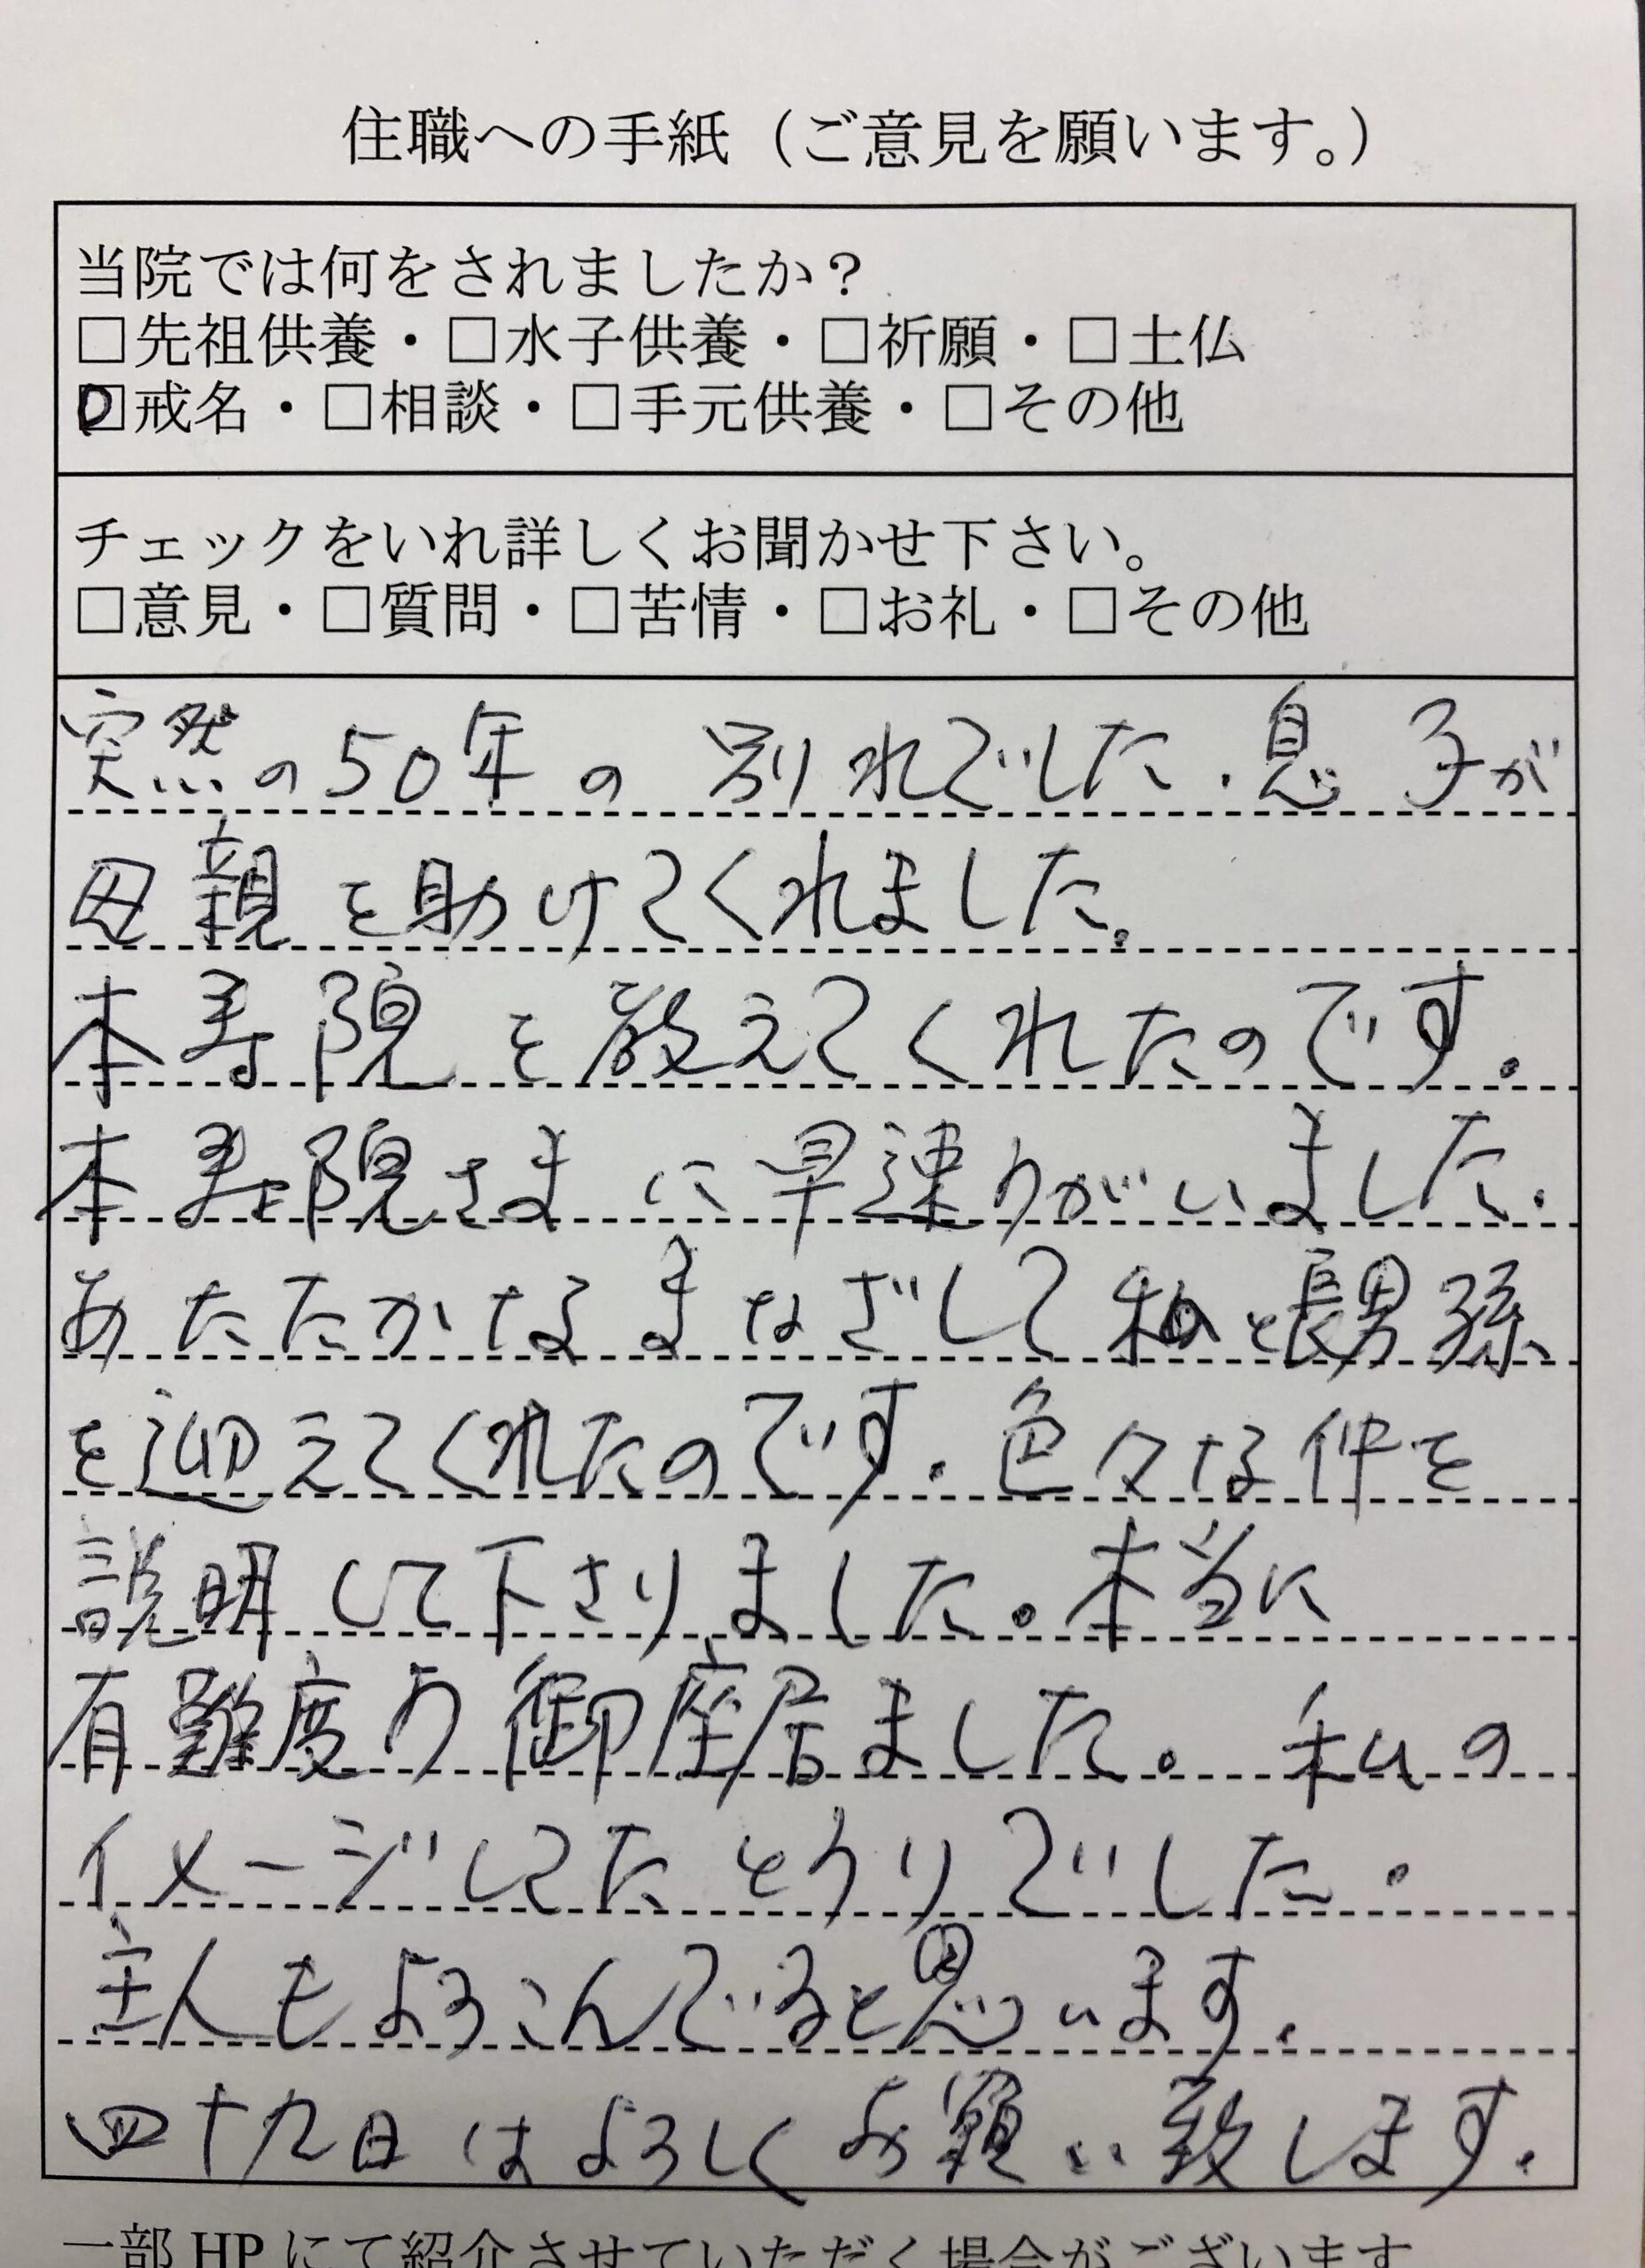 住職への手紙（ご意見を願います。）
当院では何をされましたか？
□先祖供養・□水子供養・□祈願・□土仏
☑戒名・□相談・□手元供養・□その他
チェックをいれ詳しくお聞かせ下さい。
□意見・□質問・□苦情・□お礼・□その他
突然の50年の別れでした．息子が
母親を助けてくれました。
本寿院を教えてくれたのです．
本寿院さまに早速うがいました．
あたたかなまなざしで私と長男孫
を迎えてくれたのです．色々な件を
説明して下さりました。本当に
有難度う御座居ました。私の
イメージしてたとうりでした．
主人もよろこんでると思います．
四十九日はよろしくお願い致します．
一部HPにて紹介させていただく場合がございます